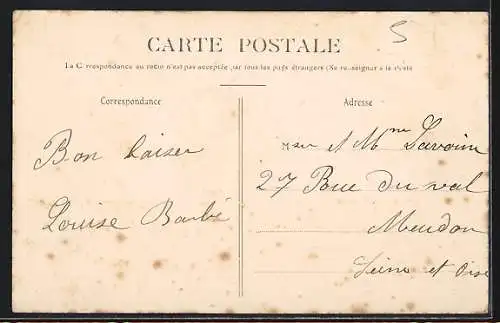 5
CARTE POSTALE
La Correspondance au recto n'est pas acceptée par tous les pays étrangers (Se renseigner à la Poste)
Correspondance
Adresse
Bon baiser
Louise Barbé
Msr et Mme Lavoine
27 Rue du val
Meudon
Seine et Oise